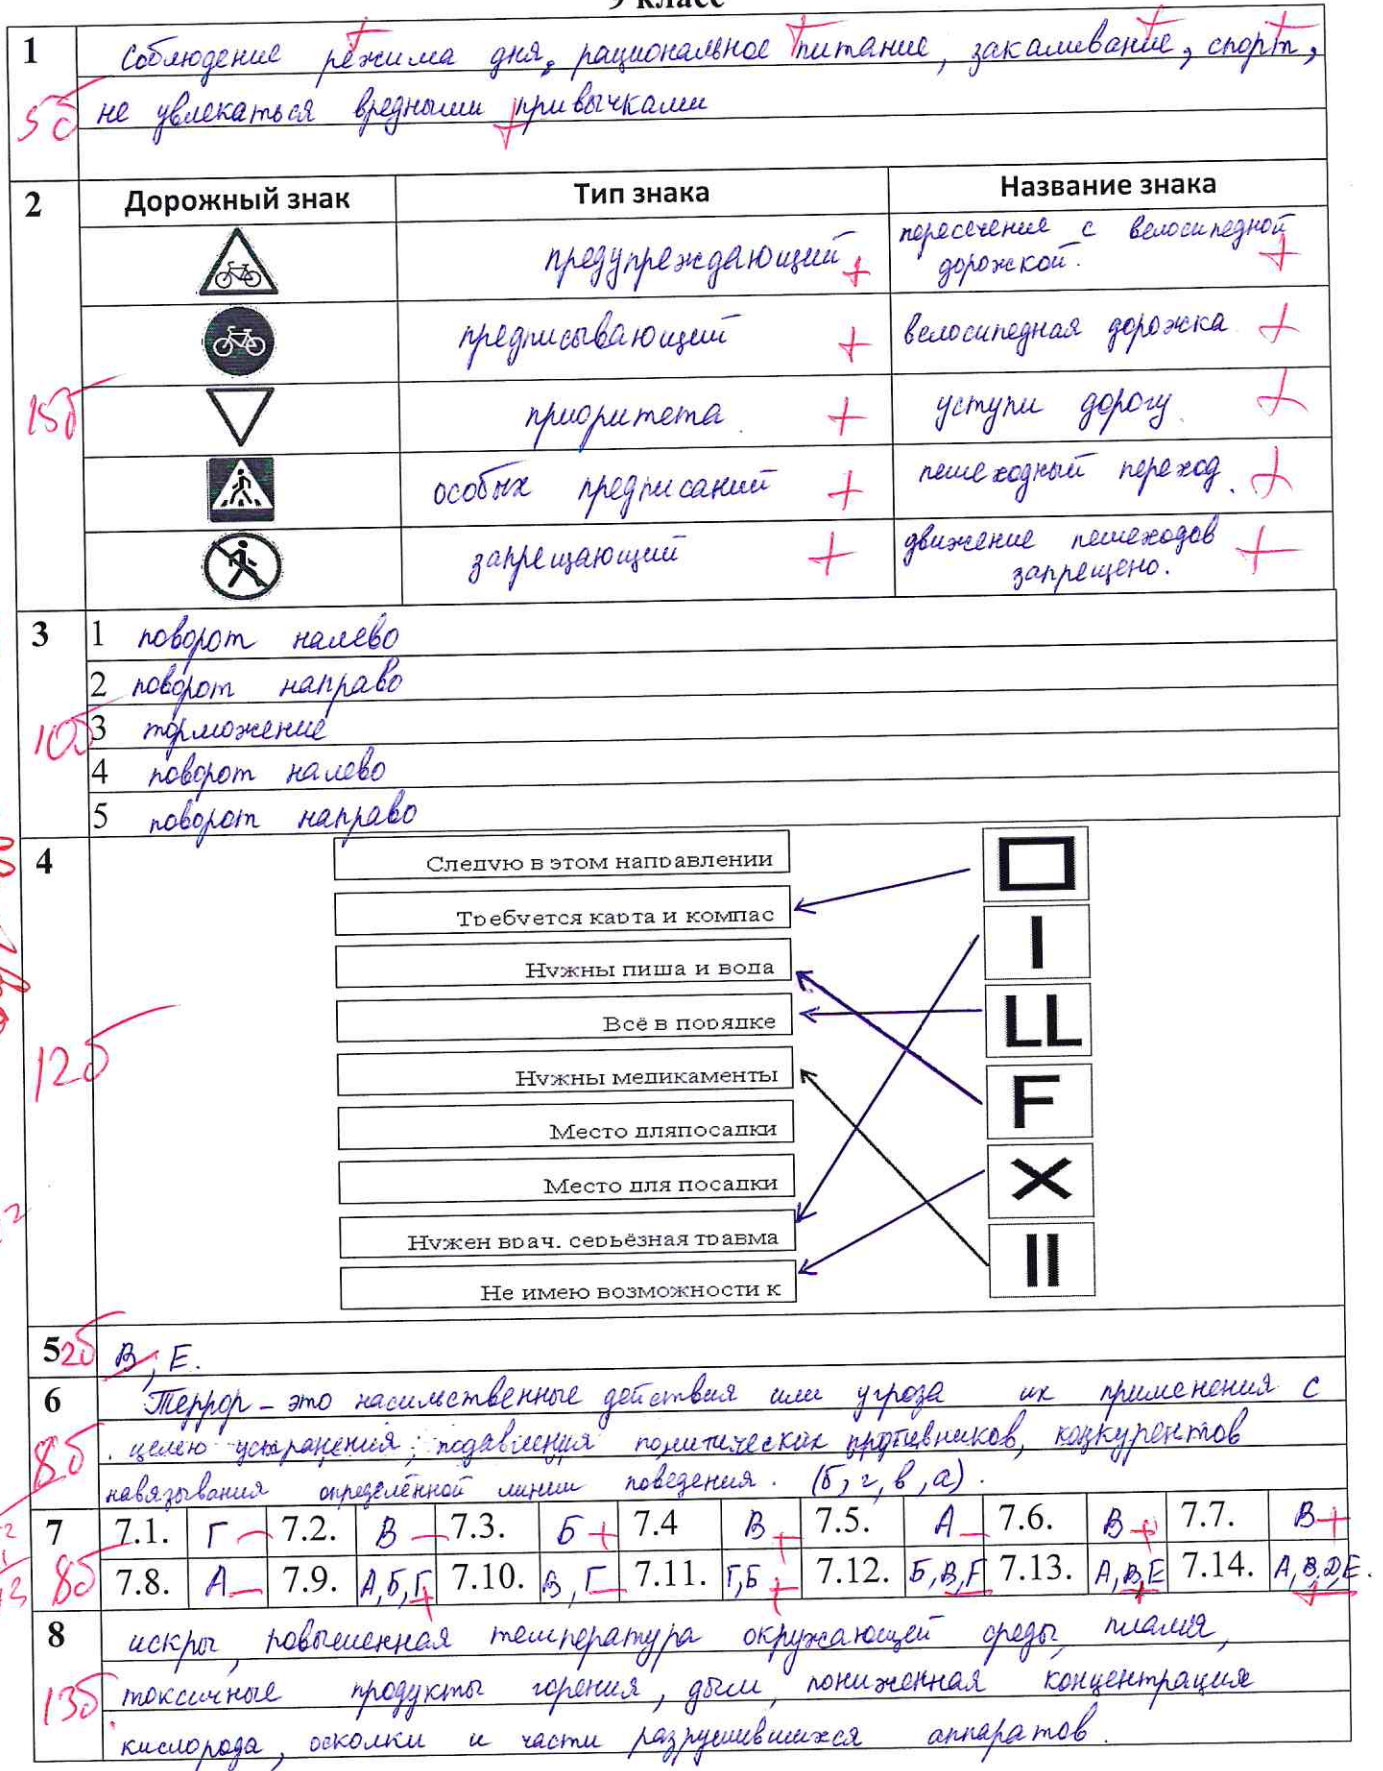 9 класс
1 Соблюдение режима дня, рациональное питание, закаливание, спорт,
5б не увлекаться вредными привычками
2 Дорожный знак Тип знака Название знака
предупреждающий + пересечение с велосипедной дорожкой. +
предписывающий + велосипедная дорожка +
15б приоритета + уступи дорогу +
особых предписаний + пешеходный переход. +
запрещающий + движение пешеходов запрещено. +
3 1 поворот налево
2 поворот направо
10б 3 торможение
4 поворот налево
5 поворот направо
4 Следую в этом направлении
Требуется карта и компас
Нужны пища и вода I
Всё в порядке LL
12б Нужны медикаменты F
Место дляпосадки
Место для посадки X
Нужен врач. серьёзная травма
Не имею возможности к II
5 2б В, Е.
6 Террор – это насильственные действия или угроза их применения с
8б целью устранения, подавления политических противников, конкурентов
навязывания определённой линии поведения. (б, г, в, а).
7 7.1. Г – 7.2. В – 7.3. Б + 7.4 В + 7.5. А – 7.6. В + 7.7. В +
8б 7.8. А – 7.9. А,Б,Г + 7.10. В,Г – 7.11. Г,Б + 7.12. Б,В,Г – 7.13. А,В,Е + 7.14. А,В,Д,Е. +
8 искры, повышенная температура окружающей среды, пламя,
13б токсичные продукты горения, дым, пониженная концентрация
кислорода, осколки и части разрушившихся аппаратов.